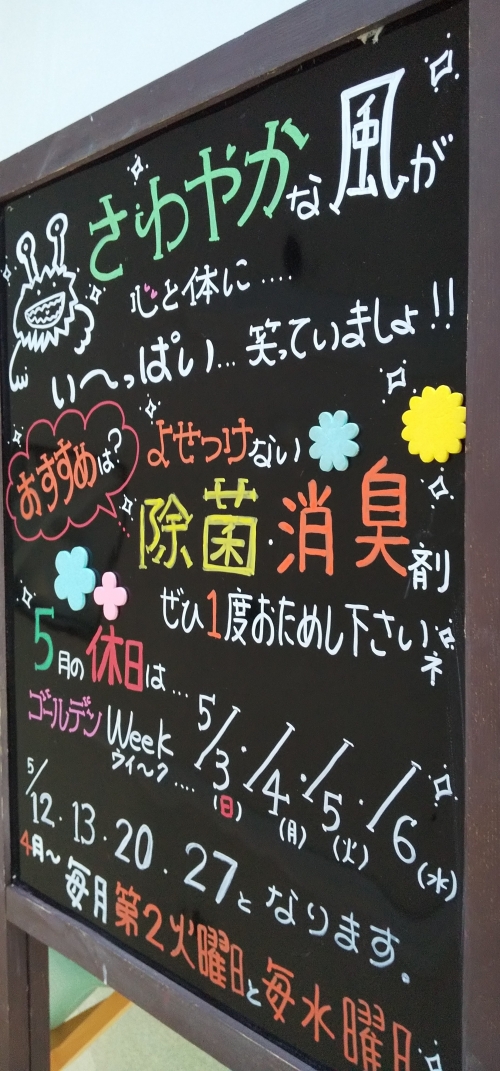 さわやかな風が
心と体に‥‥
い〜っぱい…笑っていましょ!!
おすすめは?
よせつけない
除菌・消臭剤
ぜひ1度おためし下さいネ
5月の休日は…
ゴールデンWeek
ウィ〜ク‥‥
5/3・/4・/5・/6
(日)(月)(火)(水)
5/12・13・20・27となります。
4月〜毎月第2火曜日と毎水曜日